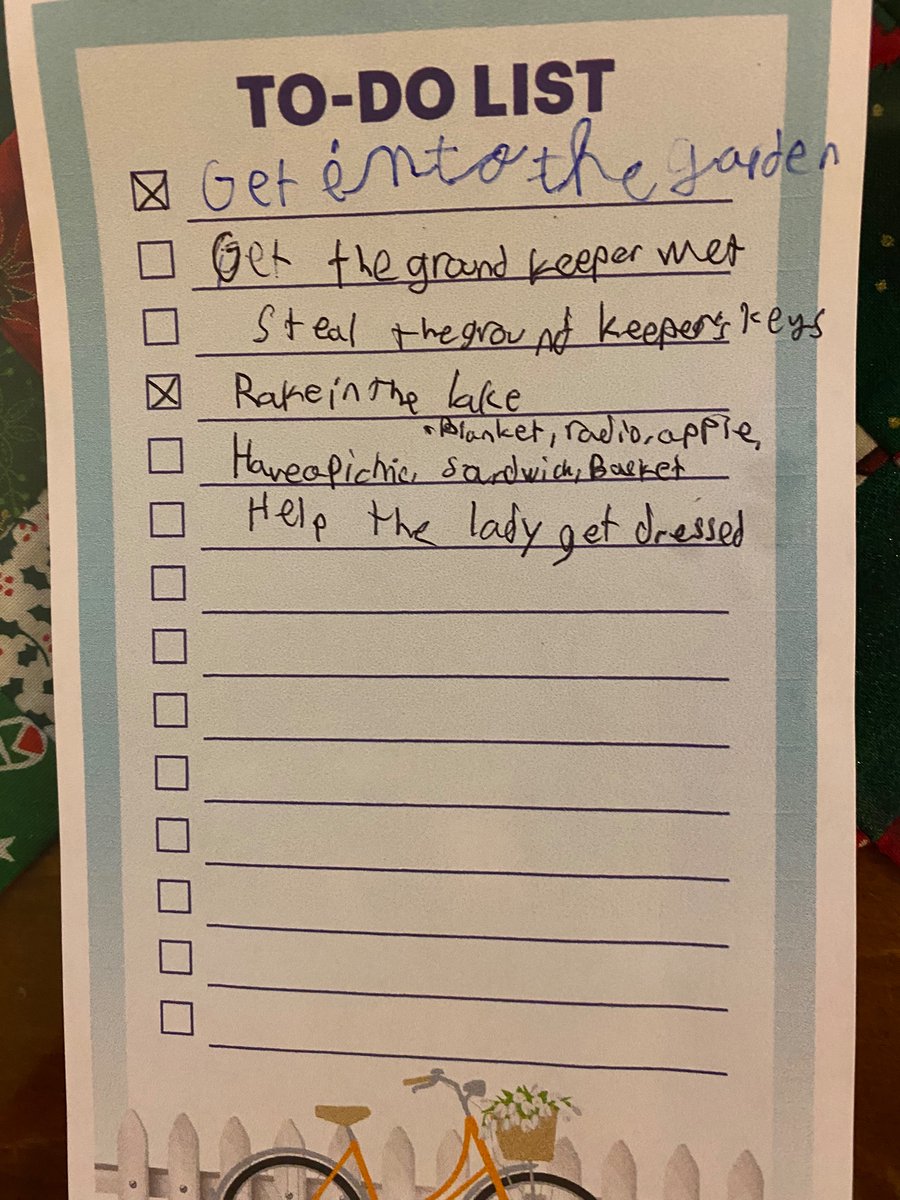 TO-DO LIST
Get into the garden
Get the ground keeper wet
Steal the ground keeper's keys
Rake in the lake
Blanket, radio, apple,
Have a picnic, sandwich, Basket
Help the lady get dressed